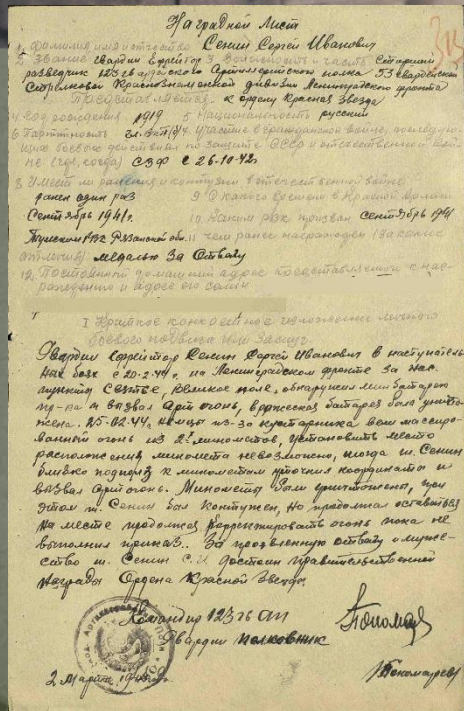 Наградной Лист
1 Фамилия имя и отчество Сенин Сергей Иванович
2 Звание гвардии Ефрейтор 3 Должность и часть Старший
разведчик 123 гв Артиллерийского полка 53 гвардейской
Стрелковой Краснознаменной дивизии Ленинградского фронта
Представляется к ордену Красная Звезда
4 Год рождения 1919 5 Национальность русский
6 Партийность 7 Участие в гражданской войне, последую-
щих боевых действиях по защите СССР и отечественной вой-
не (где, когда) СЗФ с 26.10.42г
8 Имеет ли ранения и контузии в отечественной войне
ранен один раз 9 С какого времени в Красной Армии
Сентябрь 1941г. 10 Каким рвк призван Сентябрь 1941
РВК Рязанской обл. 11 Чем ранее награжден (за какие
отличия) медалью За Отвагу
12 Постоянный домашний адрес представляемого к наг-
раждению и адрес его семьи
I Краткое конкретное изложение личного
боевого подвига или заслуг
Гвардии Ефрейтор Сенин Сергей Иванович в наступатель-
ных боях с 20.2.44г. на Ленинградском фронте за нас.
пункты Великое поле, обнаружил мин батарею
пр-ка и вызвал Арт огонь, вражеская батарея была уничто-
жена. 25.02.44г. немцы из-за кустарника вели массиро-
ванный огонь из 2х минометов, установить место
расположения миномета невозможно, тогда т. Сенин
близко подполз к минометам уточнил координаты и
вызвал арт огонь. Минометы были уничтожены, при
этом т. Сенин был контужен, но продолжал оставаться
на месте продолжая корректировать огонь пока не
выполнил приказ. За проявленную отвагу и муже-
ство т. Сенин С.И достоин правительственной
награды Ордена Красной Звезды
Командир 123 гв АП
Гвардии полковник
Пономарев
2 Марта 1944г.